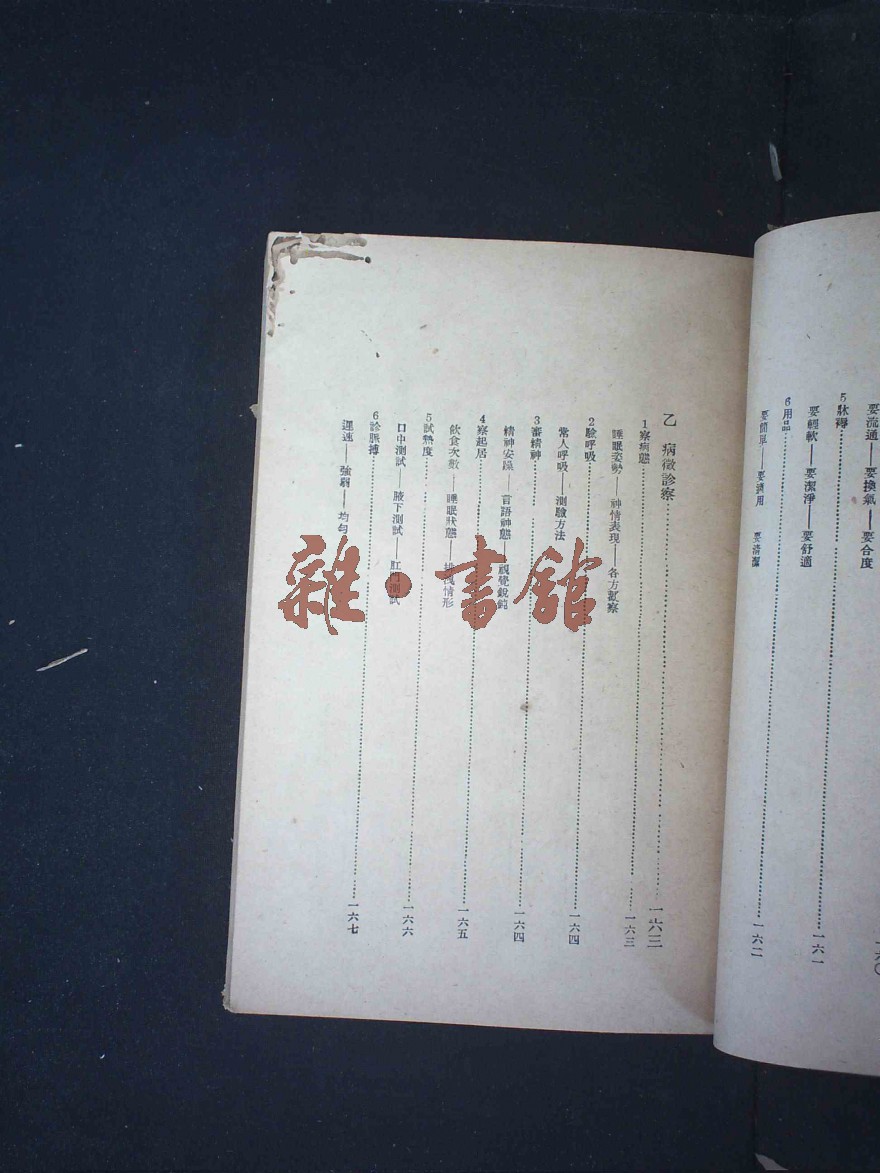 要流通——要換氣——要合度
一六〇
5 牀褥……一六一
要輕軟——要潔淨——要舒適
6 用品……一六二
要簡單——要適用　要清潔
乙　病徵診察……一六三
1 察病態……一六三
睡眠姿勢——神情表現——各方觀察
2 驗呼吸……一六四
常人呼吸——測驗方法
3 審精神……一六四
精神安躁——言語神態——視覺銳鈍
4 察起居……一六五
飲食次數——睡眠狀態——排洩情形
5 試熱度……一六六
口中測試——腋下測試——肛門測試
6 診脈搏……一六七
遲速——強弱——均勻
雜·書館